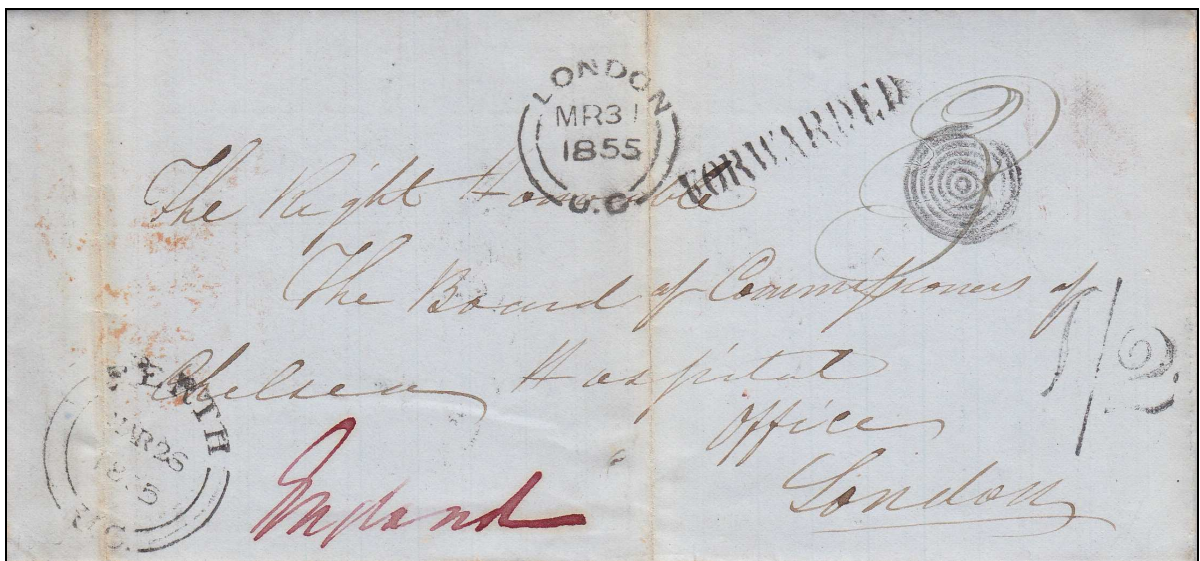 LONDON
MR31
1855
U.C.
FORWARDED
The Right Honorable
The Board of Commissioners of
Chelsea Hospital
Office
London
England
PERTH
MAR 26
1855
U.C.